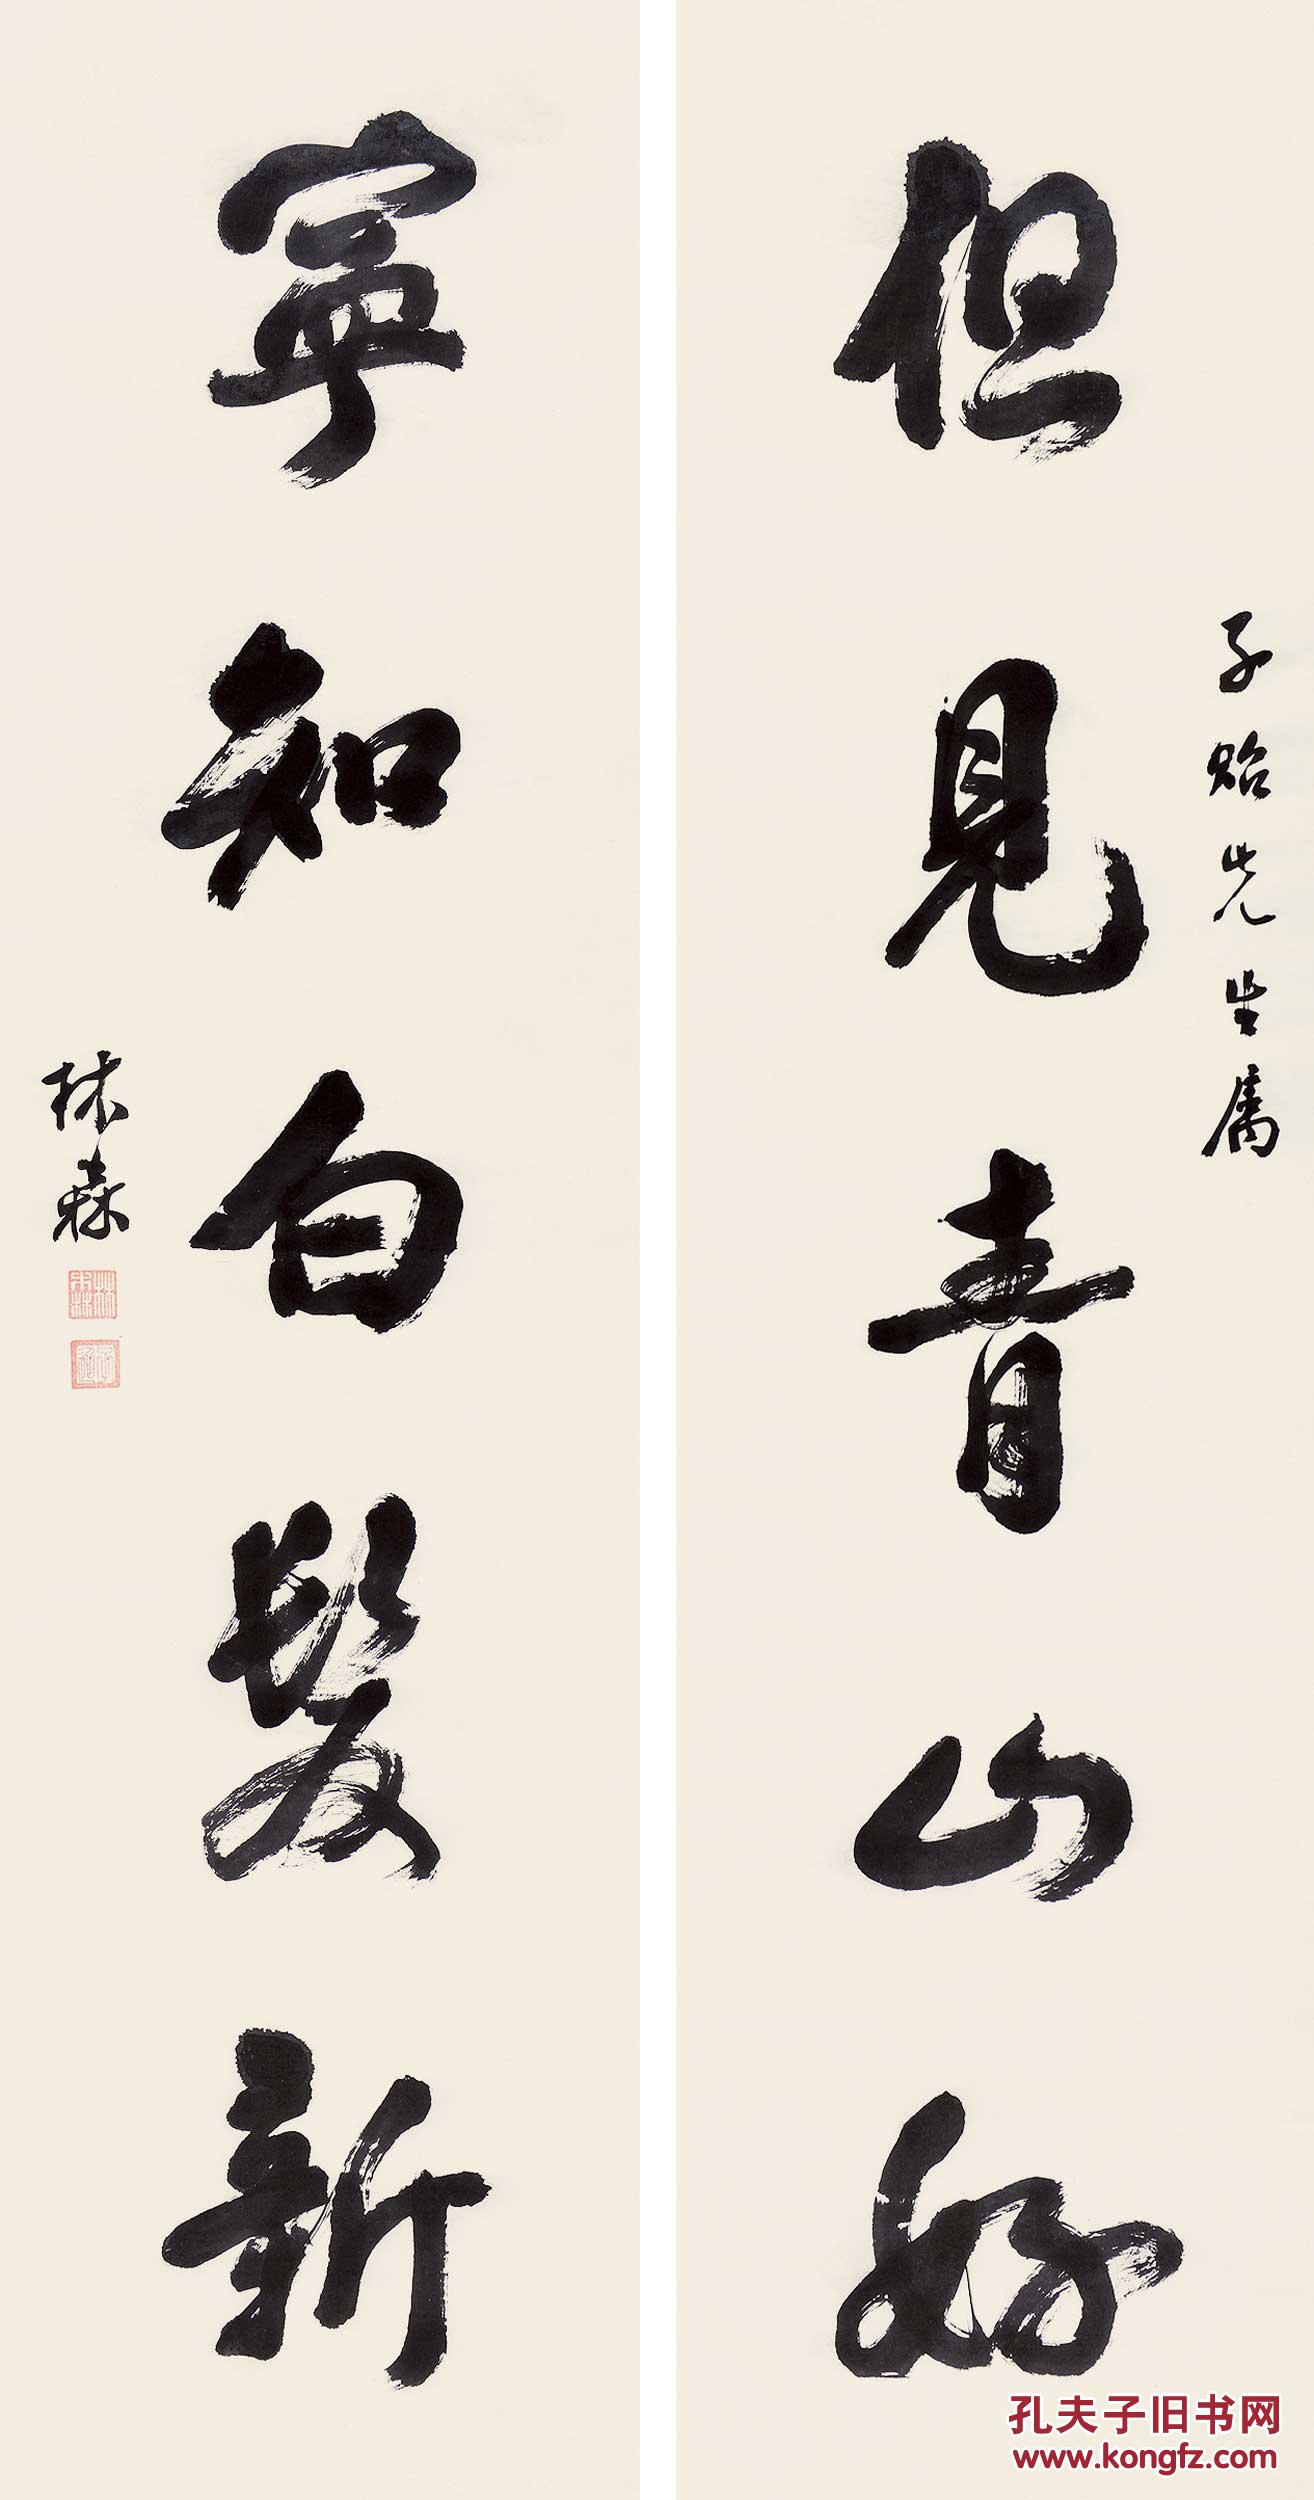 但見青山好
子貽先生屬
寧知白髮新
林森
林森
孔夫子旧书网
www.kongfz.com